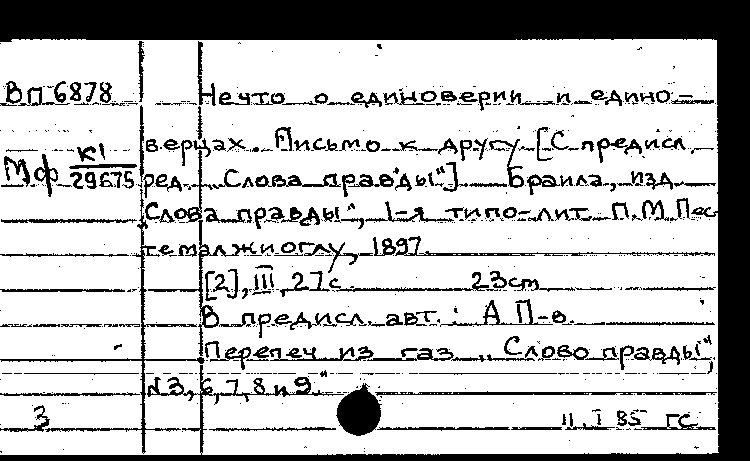 Вп 6878 Нечто о единоверии и едино-
верцах. Письмо к другу [С предисл.
Мф К1/29675 ред. „Слова правды"] Браила, изд.
„Слова правды", 1-я типо-лит. П.М. Пес
темалжиоглу, 1897.
[2], III, 27 с. 23 ст
В предисл. авт.: А П-в.
Перепеч из газ „Слово правды",
№3, 6, 7, 8 и 9."
3 11. I 85 ГС